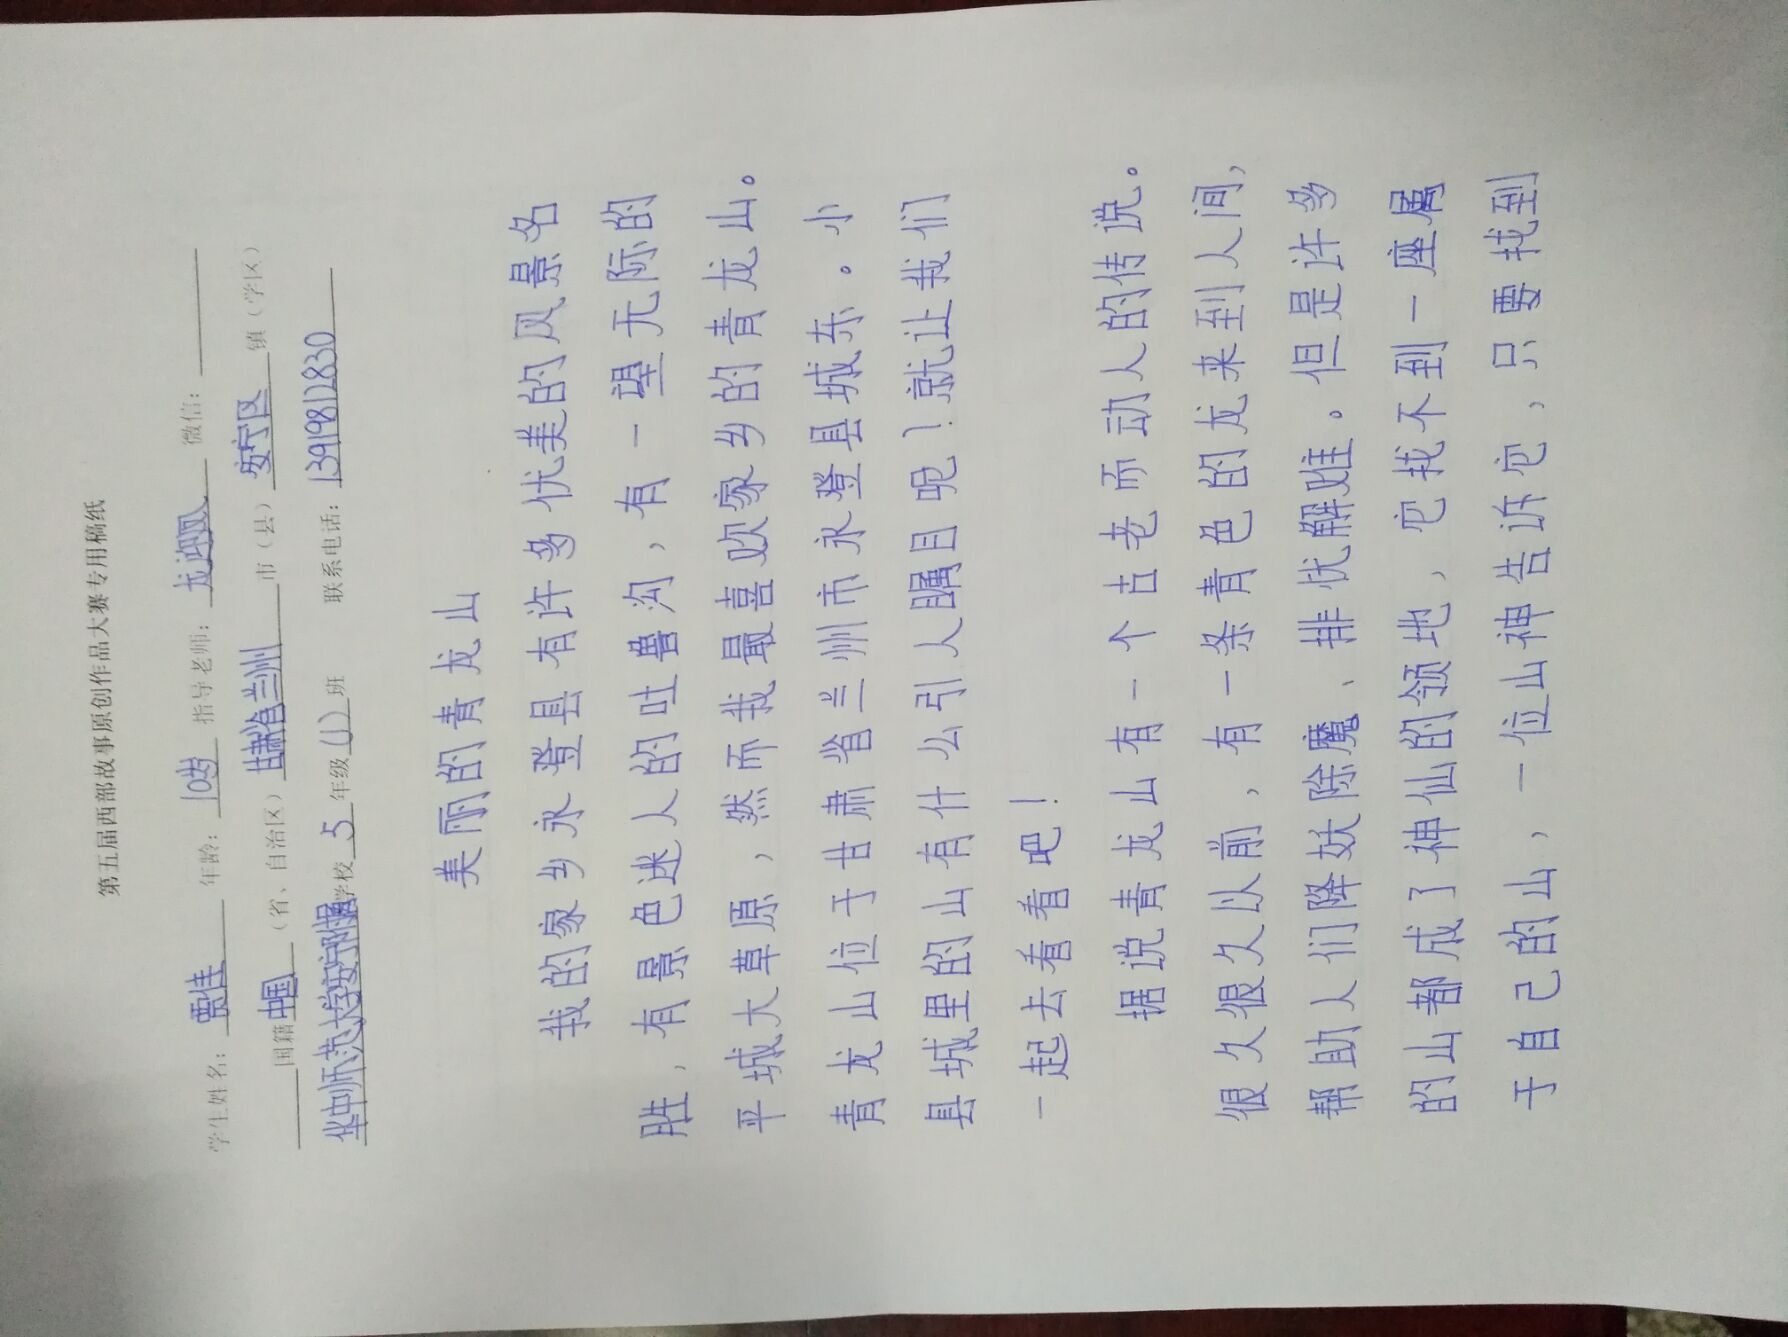 第五届西部故事原创作品大赛专用稿纸
学生姓名：贾佳 年龄：10岁 指导老师：龙迎凤 微信：
国籍中国（省、自治区）甘肃省兰州市（县）安宁区镇（学区）
华中师范大学安宁附属学校5年级（1）班 联系电话：13919812830
美丽的青龙山
我的家乡永登县有许多优美的风景名
胜，有景色迷人的吐鲁沟，有一望无际的
平城大草原，然而我最喜欢家乡的青龙山。
青龙山位于甘肃省兰州市永登县城东。小
县城里的山有什么引人瞩目呢？就让我们
一起去看看吧！
据说青龙山有一个古老而动人的传说。
很久很久以前，有一条青色的龙来到人间，
帮助人们降妖除魔、排忧解难。但是许多
的山都成了神仙的领地，它找不到一座属
于自己的山，一位山神告诉它，只要找到